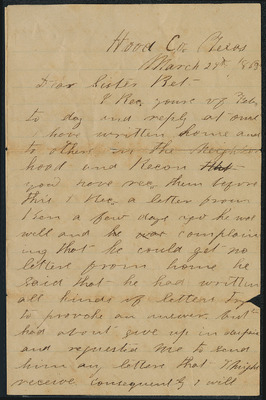 Hood Co Texas
March 29th
Dear Sister Bet
I Rec yours of Feb
to day and reply at once
I have written home and
to others in the Neighbor
hood and Recon that
you have rec them before
this I Rec a letter from
a few days ago he was
well and he was complain
ing that he could get no
letters from home he
said that he had written
all kinds of letters try
to provoke an answer but
had about give up in
and requested me to send
him any letters that I might
receive consequently I will